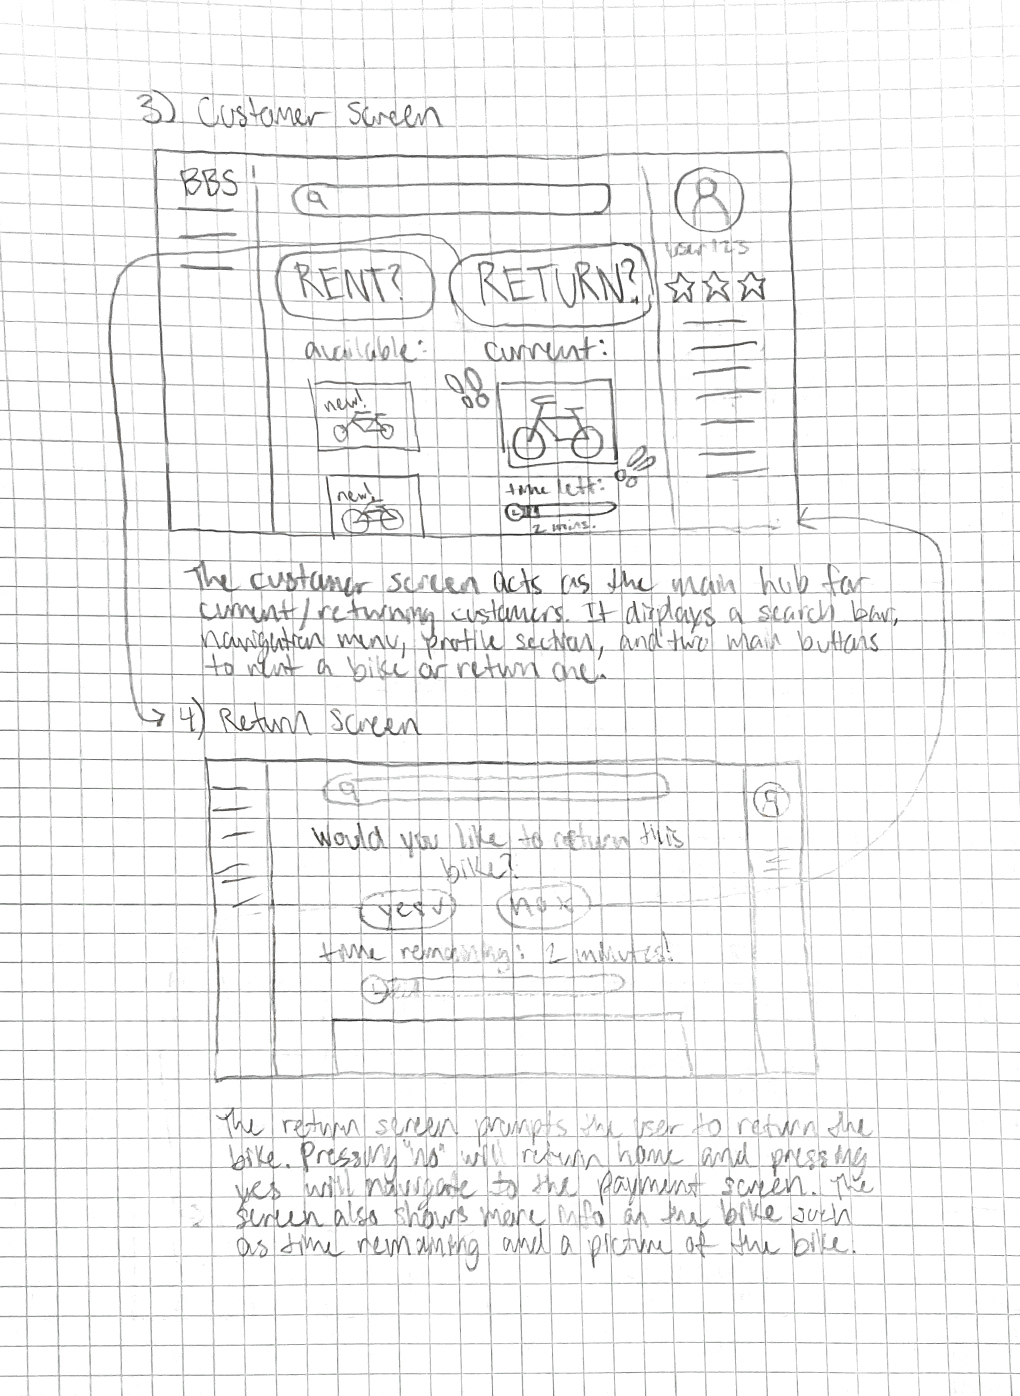 3) Customer Screen
BBS
user123
RENT? RETURN?
available: current:
new!
new!
time left:
2 mins.
The customer screen acts as the main hub for
current/returning customers. It displays a search bar,
navigation menu, profile section, and two main buttons
to rent a bike or return one.
4) Return Screen
would you like to return this
bike?
yes ✓ no x
time remaining: 2 minutes!
The return screen prompts the user to return the
bike. Pressing "no" will return home and pressing
yes will navigate to the payment screen. The
screen also shows more info on the bike such
as time remaining and a picture of the bike.